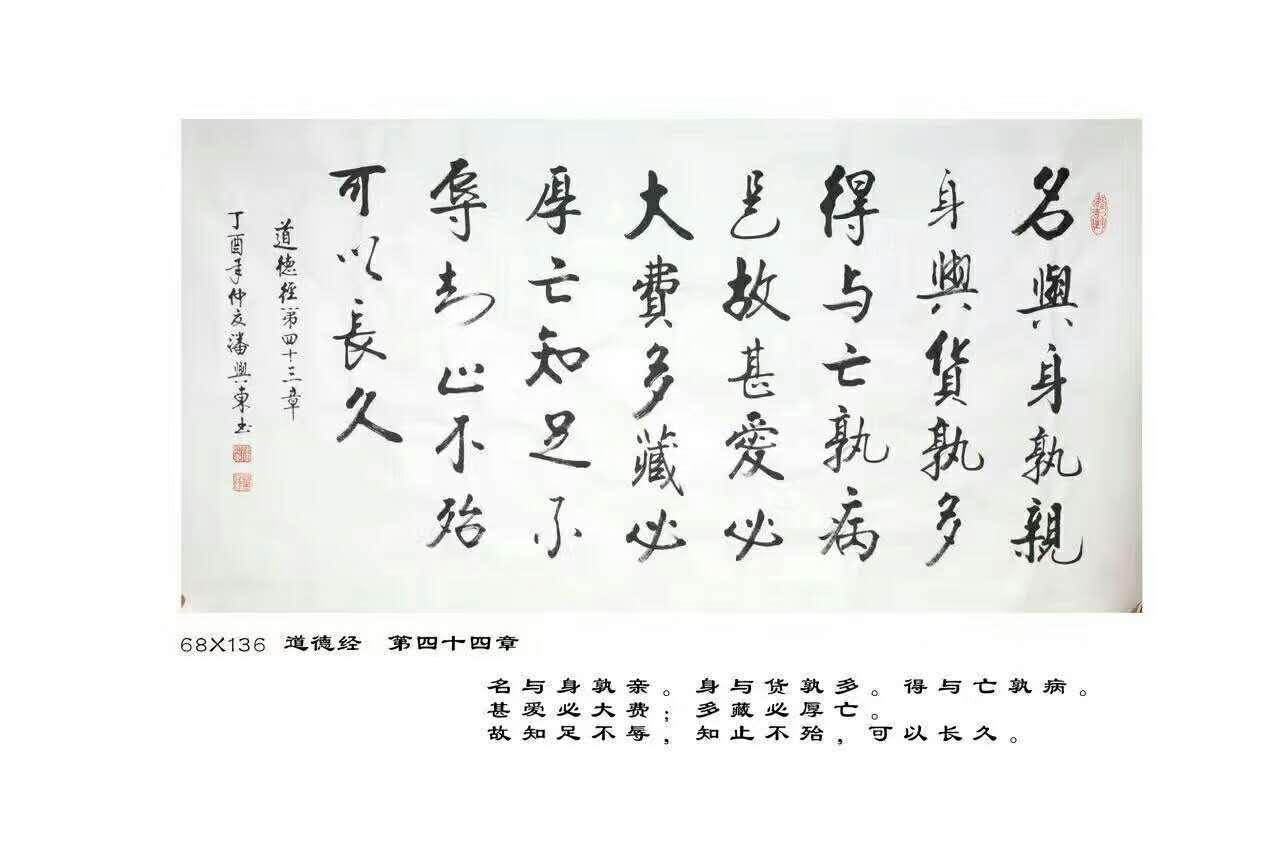 名與身孰親
身與貨孰多
得与亡孰病
是故甚愛必
大費多藏必
厚亡知足不
辱知止不殆
可以長久
道德經第四十三章
丁酉年仲夏潘興東书
68X136 道德经 第四十四章
名与身孰亲。身与货孰多。得与亡孰病。
甚爱必大费；多藏必厚亡。
故知足不辱，知止不殆，可以长久。